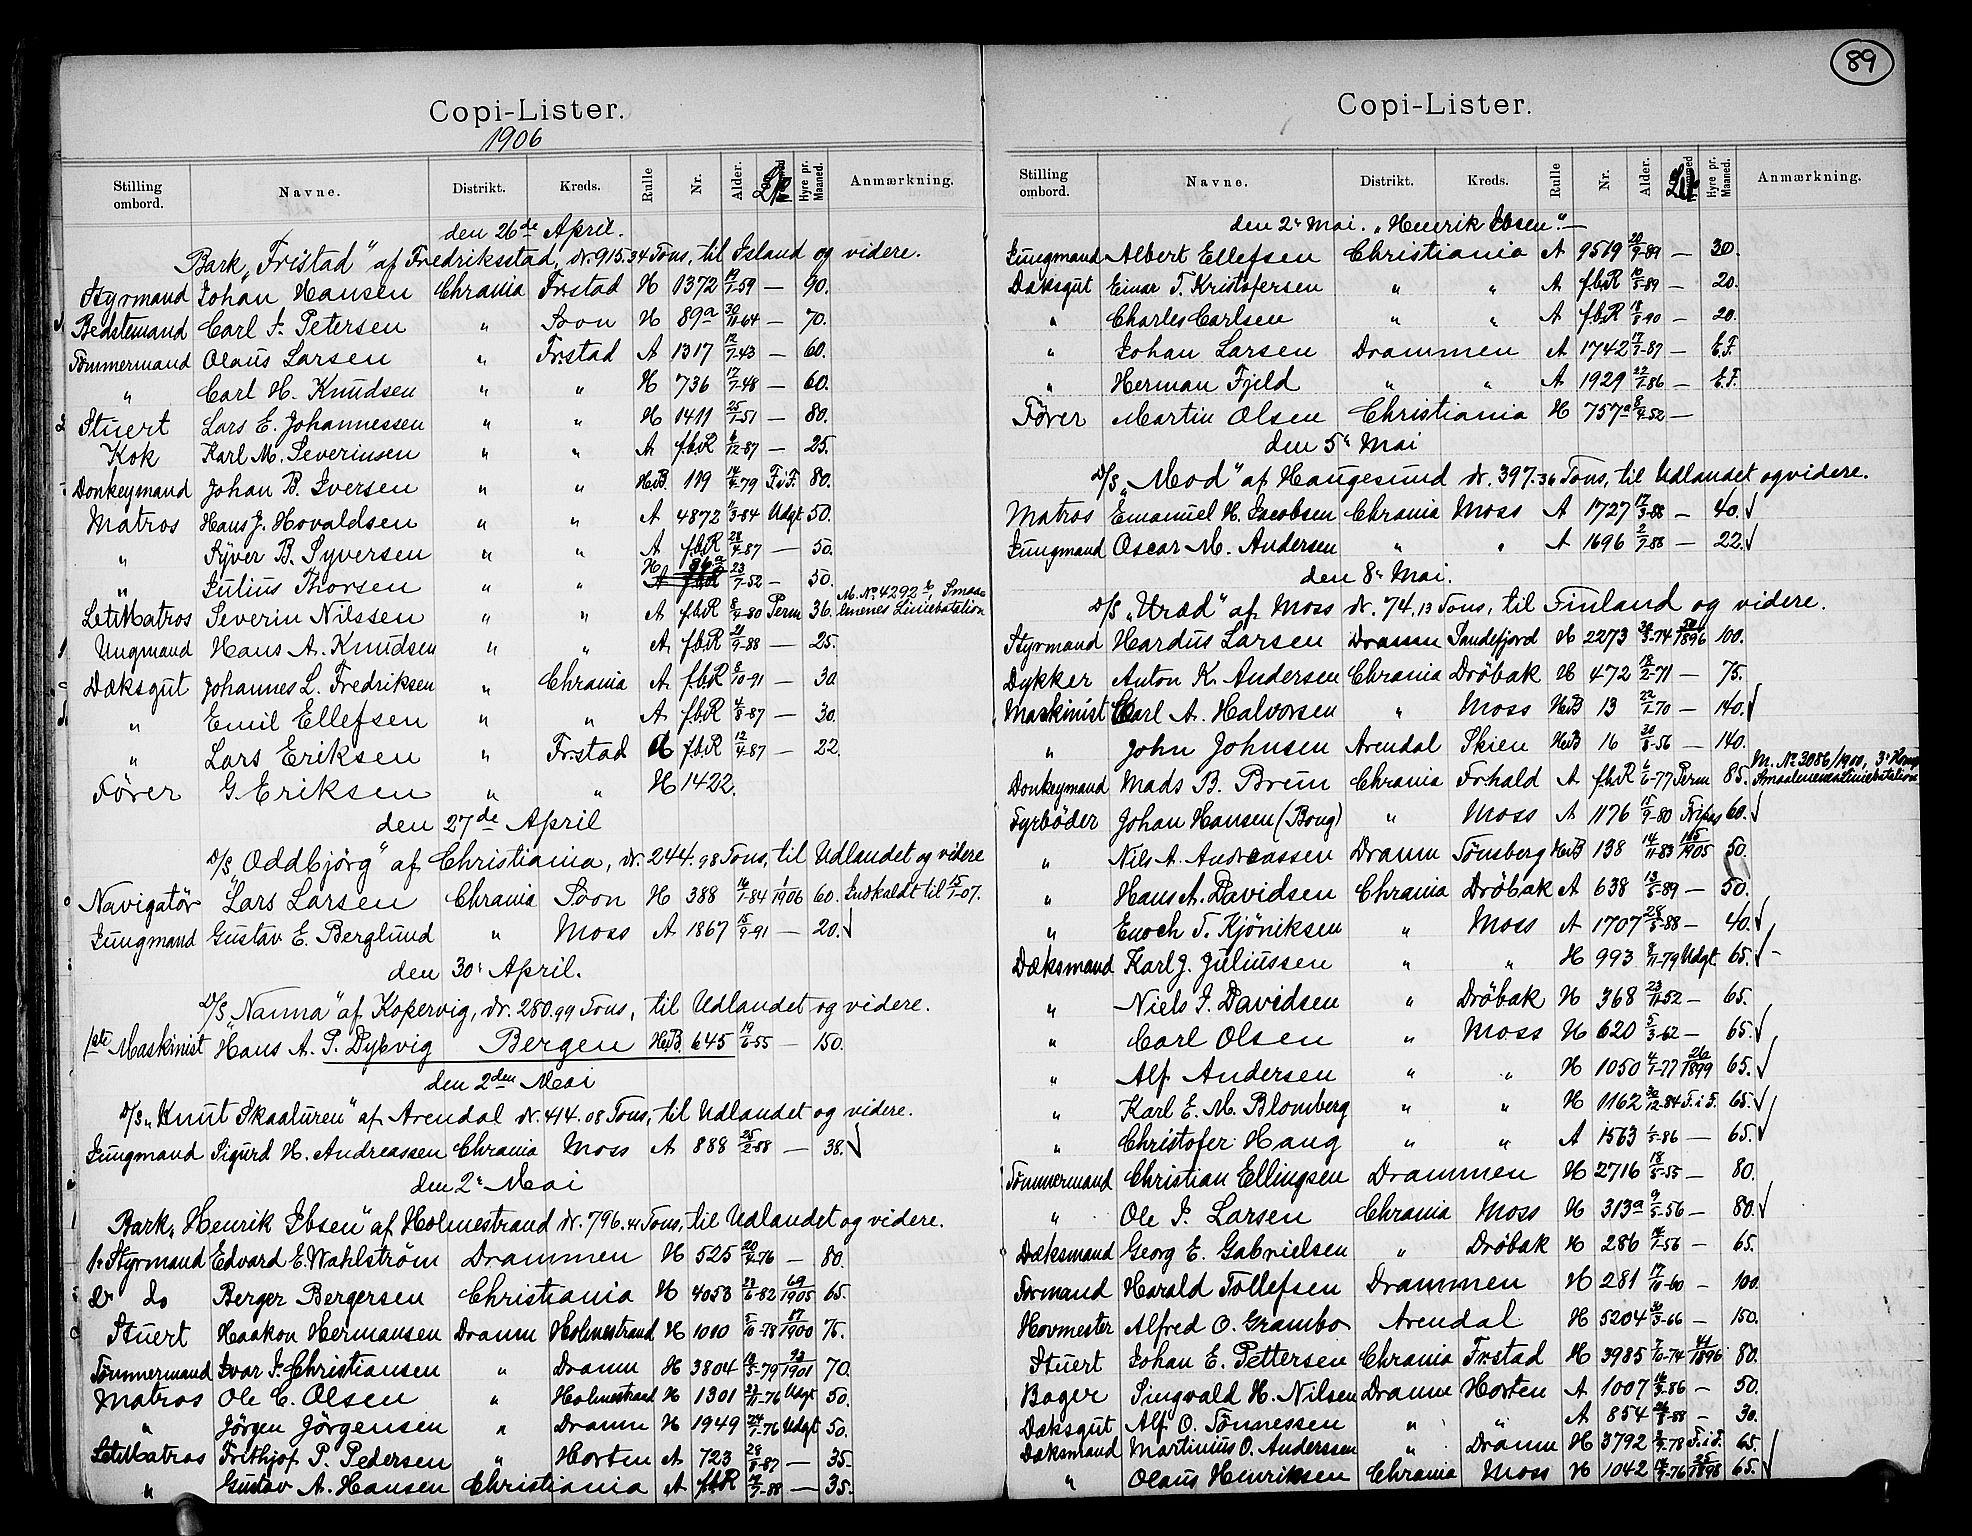 Copi-Lister.
1906
Stilling ombord. Navne. Distrikt. Kreds. Rulle Nr. Alder. Hyre pr. Maaned. Anmærkning.
den 26de April.
Bark „Fristad" af Fredriksstad, dr. 915.34 Tons, til Island og videre.
Styrmand Johan Hansen Chrania Fr.stad H 1372 19/1-59 — 90.
Bedstemand Carl F. Petersen " Soon H 89a 30/11-64 — 70.
Tømmermand Olaus Larsen " Fr.stad A 1317 12/7-43 — 60.
" Carl H. Knudsen " " H 736 17/7-48 — 60.
Stuert Lars E. Johannessen " " H 1411 25/1-51 — 80.
Kok Karl M. Severinsen " " A f.b.R 6/12-87 — 25.
Donkeymand Johan B. Iversen " " H.B. 119 14/4-79 F.i.F. 80.
Matros Hans J. Hovaldsen " " A 4872 11/3-84 Udgt 50.
" Syver B. Syversen " " A f.b.R 28/4-87 — 50.
" Julius Thorsen " " H 86a 23/7-52 — 50.
Let.Matros Severin Nilssen " " A f.b.R 8/4-80 Perm 36. M. No. 4292 b, Smaalenenes Liniebatalion
Ungmand Hans A. Knudsen " " A f.b.R 21/9-88 — 25.
Dæksgut Johannes L. Fredriksen " Chrania A f.b.R 8/10-91 — 30
" Emil Ellefsen " " A f.b.R 4/8-87 — 30.
" Lars Eriksen " Fr.stad A f.b.R 12/4-87 — 22.
Fører G. Eriksen " " H 1422.
den 27de April
D/S „Oddbjørg" af Christiania, dr. 244.98 Tons, til Udlandet og videre
Navigatør Lars Larsen Chrania Soon H 388 16/1-84 1/1906 60. Indkaldt til 15/1-07.
Jungmand Gustav E. Berglund " Moss A 1867 15/9-91 — 20.
den 30' April.
D/S „Nanna" af Kopervig, dr. 280.99 Tons, til Udlandet og videre.
1ste Maskinist Hans A. P. Dykvig Bergen H.B. 645 19/6-55 — 150.
den 2den Mai
D/S „Knut Skaaluren" af Arendal dr. 414.08 Tons, til Udlandet og videre.
Jungmand Sigurd H. Andreassen Chrania Moss A 888 25/2-88 — 38.
den 2' Mai
Bark „Henrik Ibsen" af Holmestrand dr. 796.41 Tons, til Udlandet og videre.
1' Styrmand Edvard E. Wahlstrøm Drammen H 525 20/4-76 — 80.
2' do Berger Bergersen Christiania H 4053 23/6-82 69/1905 65.
Stuert Haakon Hermansen Dramn Holmestrand H 1010 5/10-78 17/1900 75.
Tømmermand Ivar J. Christiansen " Dramn H 3804 18/3-79 93/1901 70.
Matros Ole C. Olsen " Holmestrand H 1301 23/11-76 Udgt 50.
" Jørgen Jørgensen " Dramn H 1949 24/7-76 Udgt 50.
Let.Matros Frithjof P. Pedersen " Horten A 723 28/8-87 — 35.
" Gustav A. Hansen Christiania A f.b.R 12/7-88 — 35.
89
Copi-Lister.
Stilling ombord. Navne. Distrikt. Kreds. Rulle Nr. Alder. Hyre pr. Maaned. Anmærkning.
den 2' Mai. „Henrik Ibsen". —
Jungmand Albert Ellefsen Christiania A 9519 20/9-89 — 30.
Dæksgut Einar T. Kristofersen " " A f.b.R 10/5-89 — 20.
" Charles Carlsen " " A f.b.R 18/8-90 — 20.
" Johan Larsen Drammen A 1742 17/7-87 — E.F.
" Herman Fjeld " " A 1929 22/1-86 — E.F.
Fører Martin Olsen Christiania H 757a 8/4-52 —
den 5' Mai
D/S „Mod" af Haugesund dr. 397.36 Tons, til Udlandet og videre.
Matros Emanuel H. Jacobsen Chrania Moss A 1727 17/3-88 — 40.
Jungmand Oscar M. Andersen " " A 1696 2/7-88 — 22.
den 8' Mai.
D/S „Uræd" af Moss dr. 74.13 Tons, til Finland og videre.
Styrmand Hardus Larsen Dramn Sandefjord H 2273 30/3-74 50/1896 100.
Dykker Anton K. Andersen Chrania Drøbak H 472 18/2-71 — 75.
Maskinist Carl A. Halvorsen " Moss H.B 13 22/1-70 — 140.
" John Johnsen Arendal Skien H.B 16 30/8-56 — 140.
Donkeymand Mads B. Brun Chrania Fr.hald A f.b.R 6/6-77 Perm 85. M. No 3086/1900, 3' Komp Smaalenenes Liniebatalion
Fyrbøder Johan Hansen (Boug) " Moss A 1176 15/9-80 60.
" Nils A. Andreassen Dramn Tønsberg H.B 138 14/11-83 165/1905 50.
" Hans A. Davidsen Chrania Drøbak A 638 13/5-89 — 50.
" Enoch T. Kjøniksen " Moss A 1707 28/5-88 — 40.
Dæksmand Karl J. Juliussen " " H 993 8/11-79 Udgt. 65.
" Niels J. Davidsen " Drøbak H 368 23/11-52 — 65.
" Carl Olsen " Moss H 620 5/3-62 — 65.
" Alf Andersen " " H 1050 4/1-77 26/1899 65.
" Karl E. M. Blomberg " " H 1162 30/12-84 F.i.F. 65.
" Christofer Haug " " A 1563 1/5-86 — 65.
Tømmermand Christian Ellingsen Drammen H 2716 18/5-55 — 80.
" Ole J. Larsen Chrania Moss H 313a 9/5-56 — 80.
Dæksmand Georg E. Gabrielsen " Drøbak H 286 14/1-56 — 65.
Formand Harald Tollefsen Drammen H 281 17/11-60 — 100.
Hovmester Alfred O. Grambo Arendal H 5204 30/3-66 — 150.
Stuert Johan E. Pettersen Chrania Fr.stad H 3985 7/10-74 41/1896 80.
Bager Singvald H. Nilsen Dramn Horten A 1007 16/3-86 — 50.
Dæksgut Alf O. Tønnessen " " A 854 26/8-88 — 30.
Dæksmand Martinius O. Anderssen " Dramn H 3792 3/7-78 F.i.F. 65.
" Olaus Henriksen Chrania Moss H 1042 19/7-76 32/1898 65.